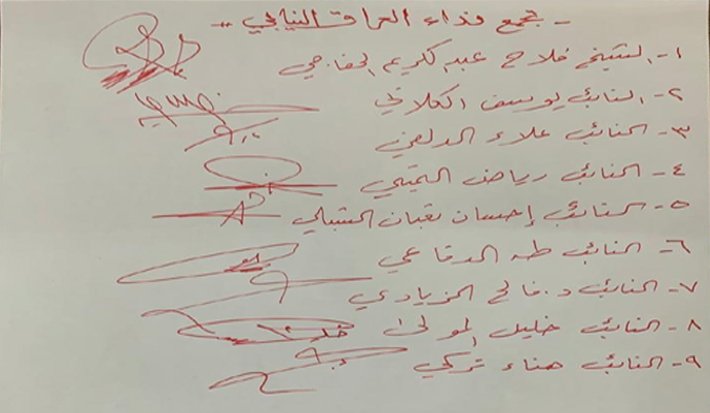 - تجمع فداء العراق النيابي ..
١- الشيخ فلاح عبد الكريم الخفاجي
٢- النائب يوسف الكلابي
٣- النائب علاء الدلفي
٤- النائب رياض التميمي
٥- النائب إحسان نغيان الشبلي
٦- النائب طه الدفاعي
٧- النائب د. فالح الزيادي
٨- النائب خليل المولى
٩- النائب هناء تركي